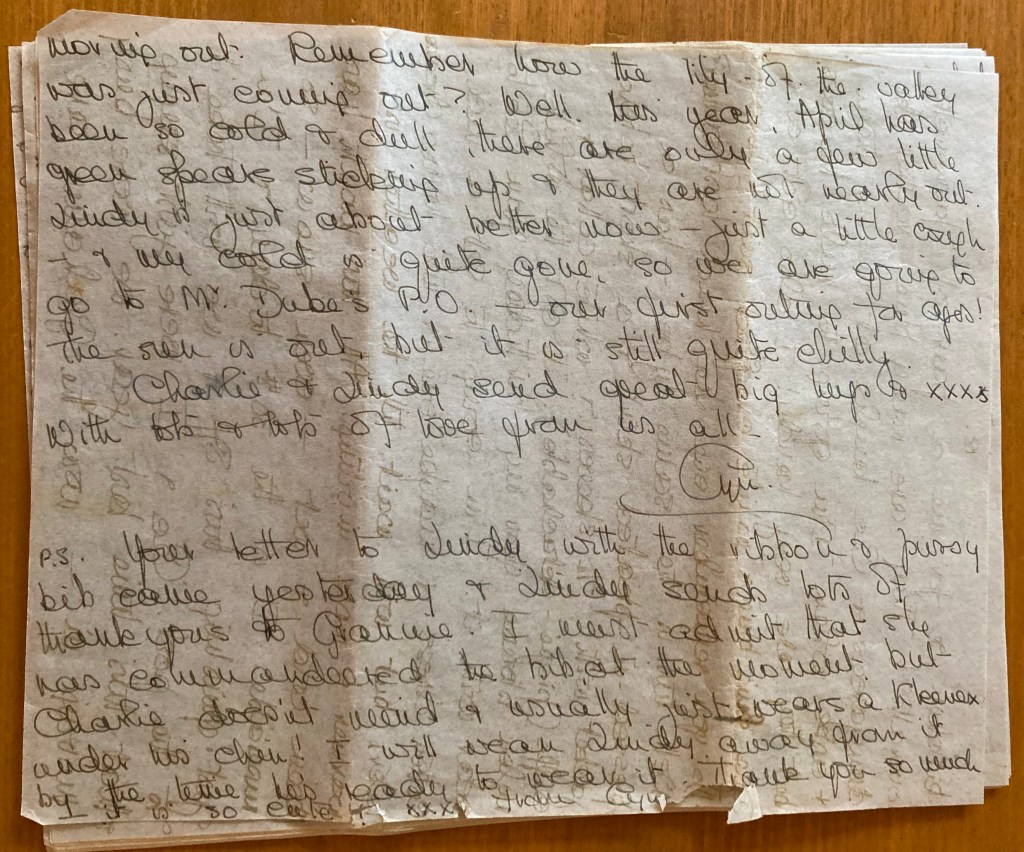 moving out. Remember how the lily-of-the-valley
was just coming out? Well this year, April has
been so cold & dull, there are only a few little
green spears sticking up & they are not nearly out.
Lindy is just about better now - just a little cough
- & my cold is quite gone, so we are going to
go to Mr. Dube's P.O. - our first outing for ages!
The sun is out, but it is still quite chilly.
Charlie & Lindy send great big hugs & xxxs
With lots & lots of love from us all.
P.S. Your letter to Lindy with the ribbon & pussy
bib came yesterday & Lindy sends lots of
thankyous to Grannie. I must admit that she
has commandeered the bib at the moment but
Charlie doesn't mind & usually just wears a Kleenex
under his chin! I will wean Lindy away from it
by the time his ready to wear it. Thank you so much
I it is so cute & xxxx from